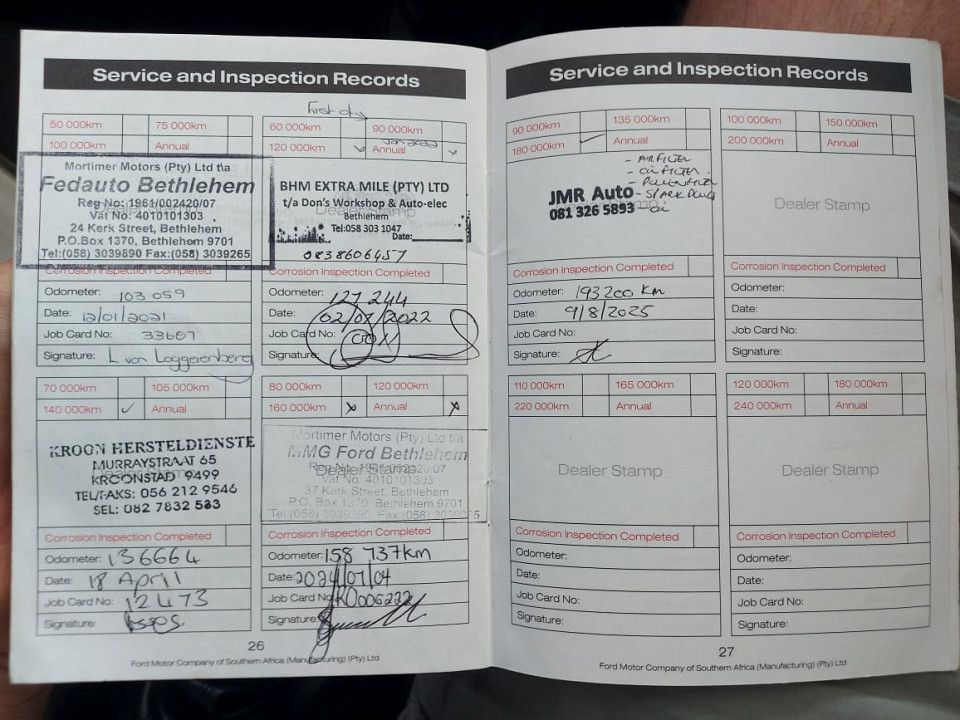 Service and Inspection Records
50 000km 75 000km
100 000km Annual
Mortimer Motors (Pty) Ltd t/a
Fedauto Bethlehem
Reg No: 1961/002420/07
Vat No: 4010101303
24 Kerk Street, Bethlehem
P.O.Box 1370, Bethlehem 9701
Tel:(058) 3039890 Fax:(058) 3039265
Corrosion Inspection Completed
Odometer: 103 059
Date: 12/01/2021
Job Card No: 33607
Signature: L van Loggerenberg
60 000km 90 000km
120 000km Annual
BHM EXTRA MILE (PTY) LTD
t/a Don's Workshop & Auto-elec
Bethlehem
Tel:058 303 1047
Date:
0838606457
Corrosion Inspection Completed
Odometer: 127 244
Date: 02/07/2022
Job Card No:
Signature:
70 000km 105 000km
140 000km ✓ Annual
KROON HERSTELDIENSTE
MURRAYSTRAAT 65
KROONSTAD 9499
TEL/FAKS: 056 212 9546
SEL: 082 7832 583
Corrosion Inspection Completed
Odometer: 136664
Date: 18 April
Job Card No: 12473
Signature:
80 000km 120 000km
160 000km x Annual x
Mortimer Motors (Pty) Ltd t/a
MMG Ford Bethlehem
Dealer Stamp
Vat No: 4010101303
37 Kerk Street, Bethlehem
P.O. Box 1370, Bethlehem 9701
Corrosion Inspection Completed
Odometer: 158 737km
Date: 2024/07/04
Job Card No:
Signature:
26
Ford Motor Company of Southern Africa (Manufacturing) (Pty) Ltd
Service and Inspection Records
90 000km 135 000km
180 000km ✓ Annual
- AIRFILTER
- OILFILTER
- POLLENFILTER
- SPARK PLUG
- OIL
JMR Auto
081 326 5893
Corrosion Inspection Completed
Odometer: 193200 km
Date: 9/8/2025
Job Card No:
Signature:
100 000km 150 000km
200 000km Annual
Dealer Stamp
Corrosion Inspection Completed
Odometer:
Date:
Job Card No:
Signature:
110 000km 165 000km
220 000km Annual
Dealer Stamp
Corrosion Inspection Completed
Odometer:
Date:
Job Card No:
Signature:
120 000km 180 000km
240 000km Annual
Dealer Stamp
Corrosion Inspection Completed
Odometer:
Date:
Job Card No:
Signature:
27
Ford Motor Company of Southern Africa (Manufacturing) (Pty) Ltd